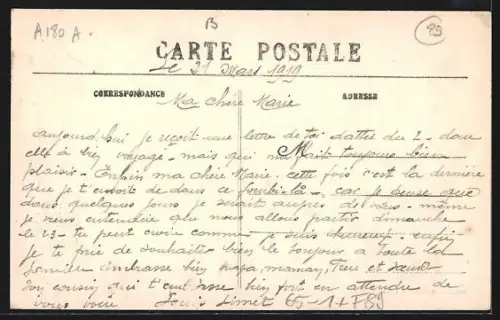 A180 A.
B
93
CARTE POSTALE
Le 21 Mars 1919
CORRESPONDANCE
ADRESSE
Ma chère Marie
aujourd'hui je reçoit une lettre de toi dattée du 2 - donc
elle à bien voyagé - mais qui ma fait toujours bien
plaisir - Enfin ma chère Marie cette fois c'est la dernière
que je t'envoit de dans ce fourbi-là - car je pense que
dans quelques jours je serait auprès de vous - même
je viens entendre que nous allons partir dimanche
le 23 - tu peut croire comme je suis heureux - enfin
je te prie de souhaiter bien le bonjour a toute la
famille embrasse bien papa, maman, frere et soeur
ton cousin qui t'embrasse bien fort en attendre de
vous voir Louis
65-1+789